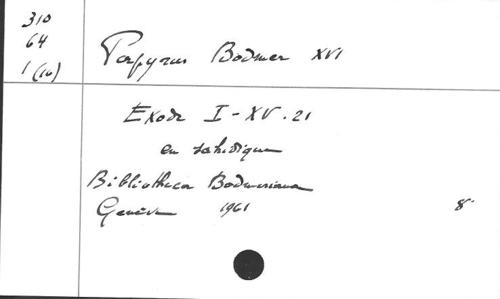 310
64
1 (16)
Papyrus Bodmer XVI
Exode I - XV. 21
en sahidique
Bibliotheca Bodmeriana
Genève 1961 8°